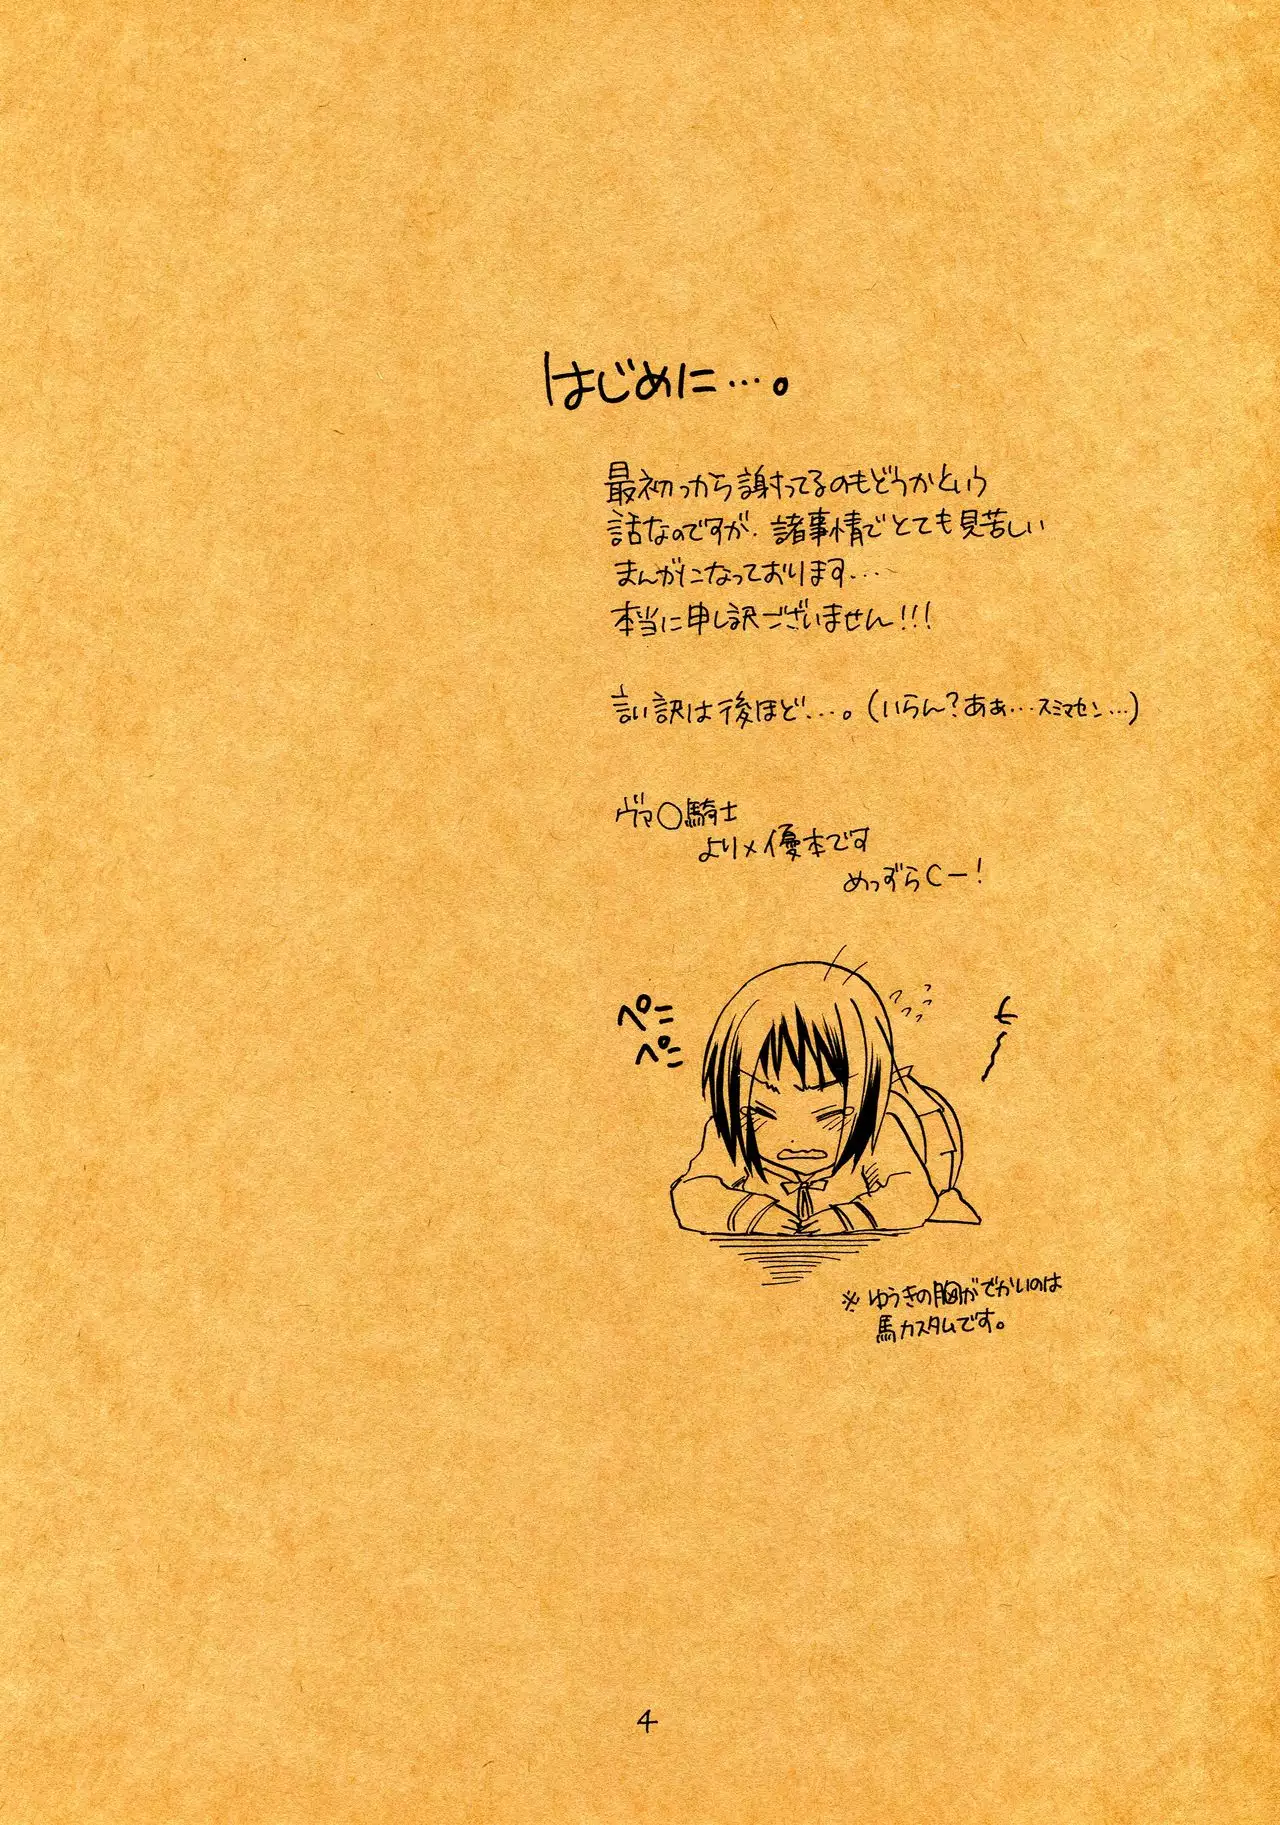 はじめに…。
最初っから謝ってるのもどうかという
話なのですが、諸事情でとても見苦しい
まんがになっております…
本当に申し訳ございません!!!
言い訳は後ほど…。(いらん?あぁ…スミマセン…)
ヴァ○騎士
より×優本です
めっずらCー!
ペこ
ペこ
※ゆうきの胸がでかいのは
馬カスタムです。
4